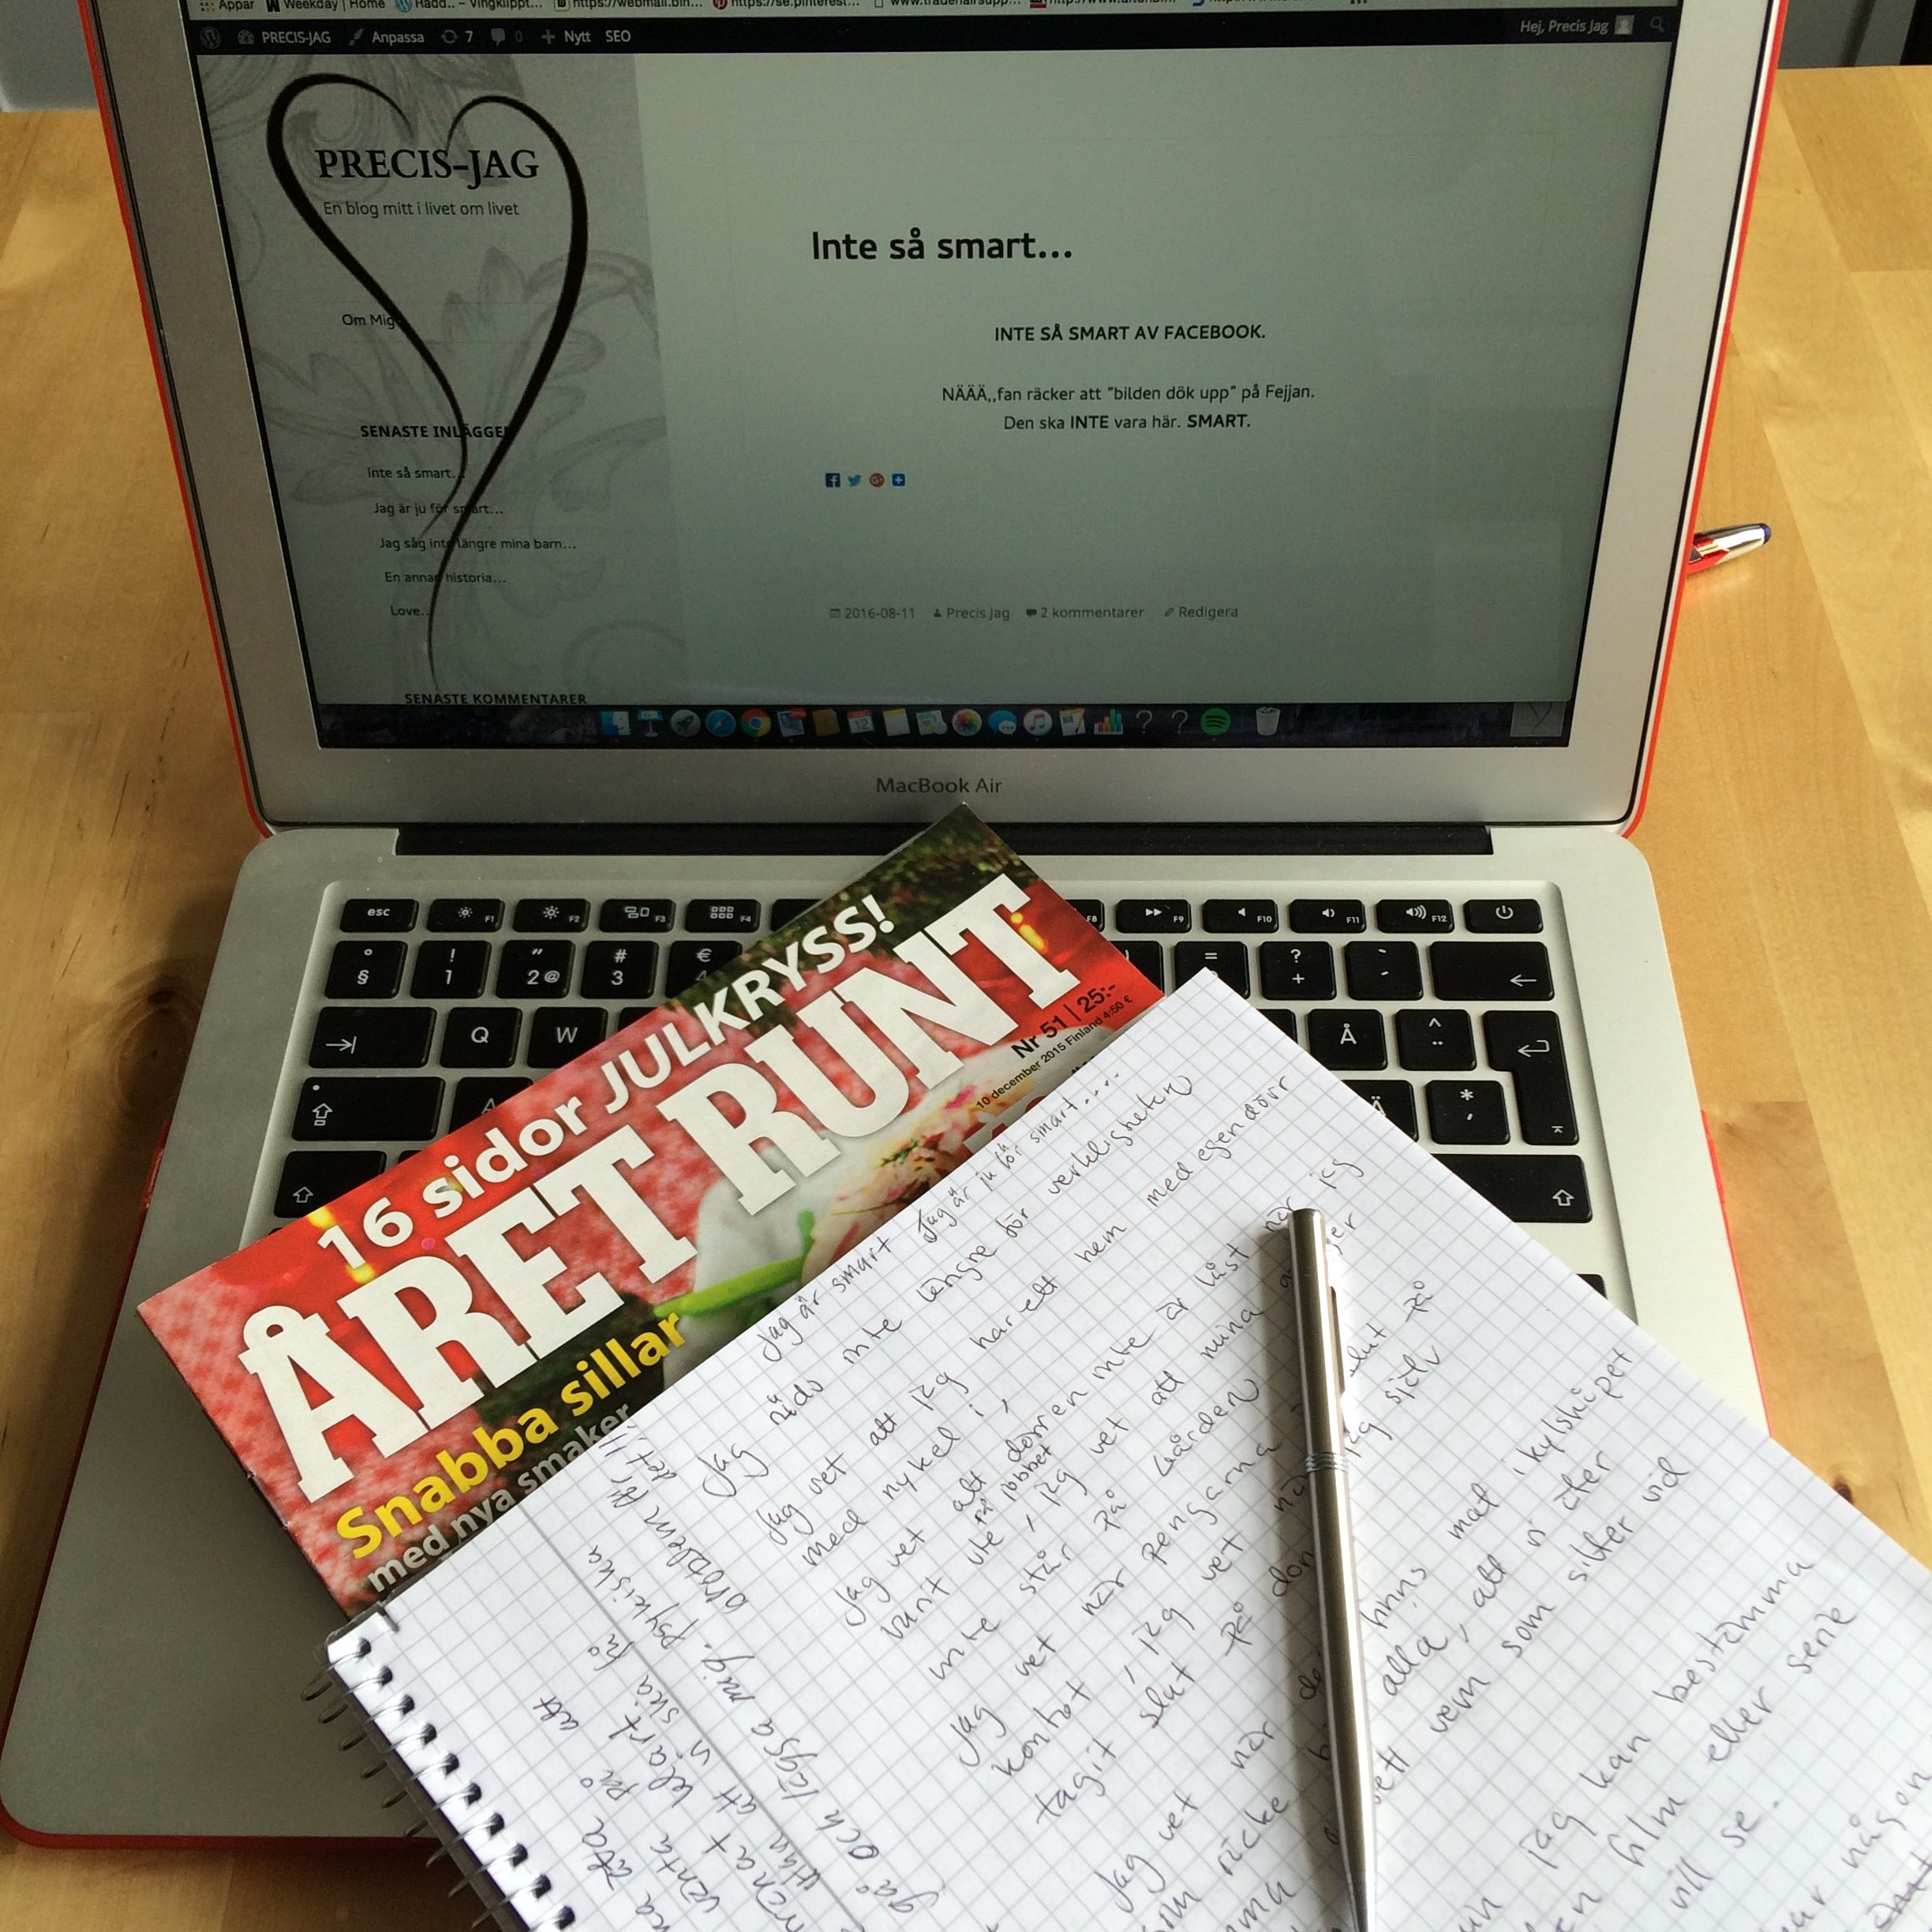 Appar
Weekday | Home
Rädd.. – Vingklippt...
https://webmail.bin...
https://se.pinterest...
PRECIS-JAG
Anpassa
7
0
Nytt
SEO
Hej, Precis Jag
PRECIS-JAG
En blog mitt i livet om livet
Om Mig
SENASTE INLÄGGEN
Inte så smart...
Jag är ju för smart...
Jag såg inte längre mina barn...
En annan historia...
Love..
SENASTE KOMMENTARER
Inte så smart...
INTE SÅ SMART AV FACEBOOK.
NÄÄÄ,,fan räcker att "bilden dök upp" på Fejjan.
Den ska INTE vara här. SMART.
2016-08-11
Precis Jag
2 kommentarer
Redigera
12
MacBook Air
esc
F1
F2
F3
F4
F8
F9
F10
F11
F12
° §
! 1
" 2 @
# 3
€ 4
=
? +
` -
Q
W
Å
^ ¨
A
Ä
* '
16 sidor JULKRYSS!
ÅRET RUNT
Nr 51 | 25:-
10 december 2015 Finland 4:50 €
Snabba sillar
med nya smaker
Jag är smart Jag är ju för smart....
Jag räds inte längre för verkligheten
Jag vet att jag har ett hem med egen dörr
med nyckel i,
Jag vet att dörren inte är låst när jag
på jobbet
varit ute, jag vet att mina
inte står på gården
Jag vet när pengarna slut på
kontot, jag vet när jag själv
tagit slut på
Jag vet när det finns mat i kylskåpet
som räcker alla, att vi äter
sett vem som sitter vid
jag kan bestämma
film eller serie
vill se.
någon
psykiska problem får
gå och lägga mig.
utan att vi ska få
klart på att
vänta